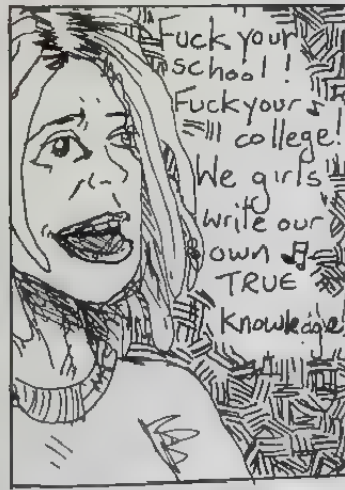 Fuck your
school!
Fuck your
college!
We girls
write our
own
TRUE
Knowledge